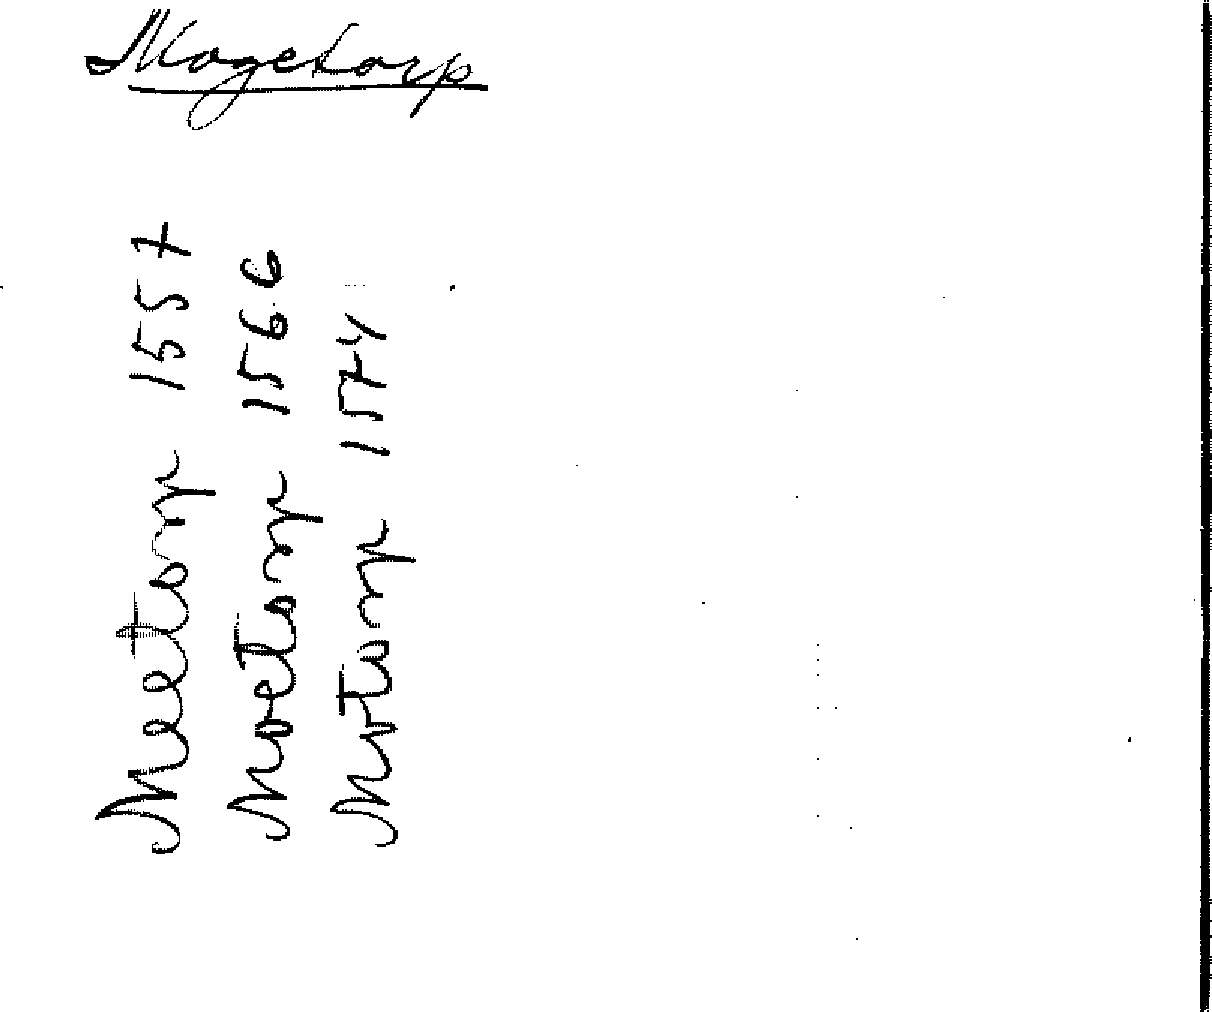 Mogetorp
Meetorp 1557
Moetorp 1566
Motorp 1574